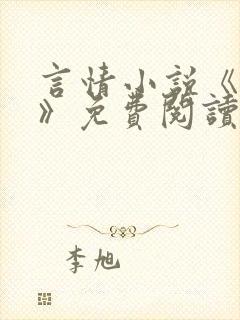 言情小说《
》免費閱讀
李旭